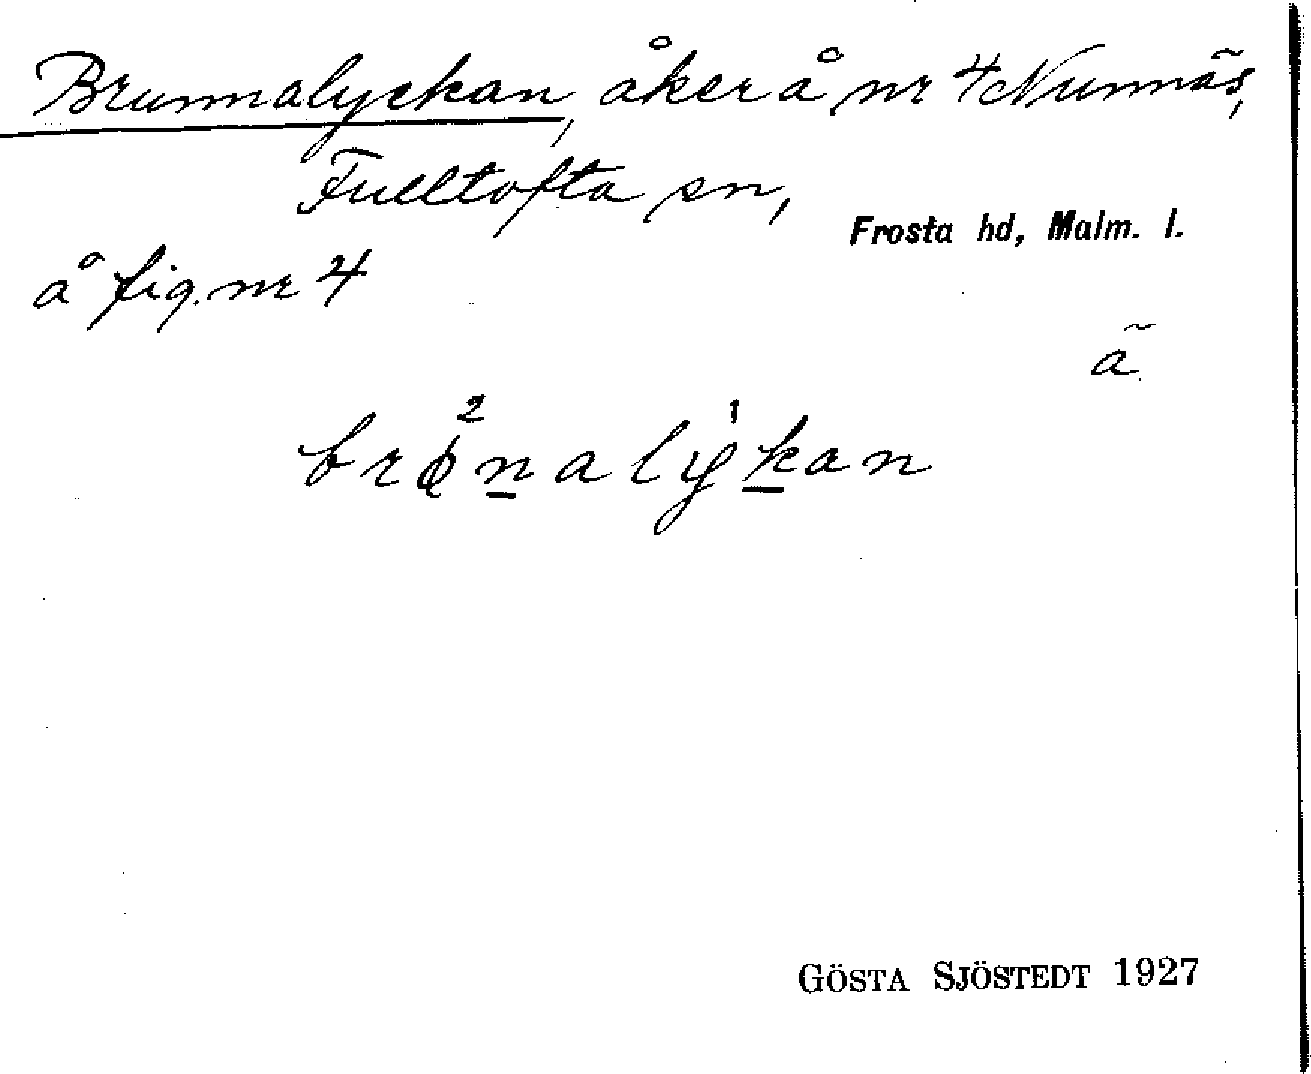 Brunnalyckan, åker å nr 4 Nunnäs,
Fulltofta sn,
Frosta hd, Malm. l.
å fig. nr 4
ä
GÖSTA SJÖSTEDT 1927